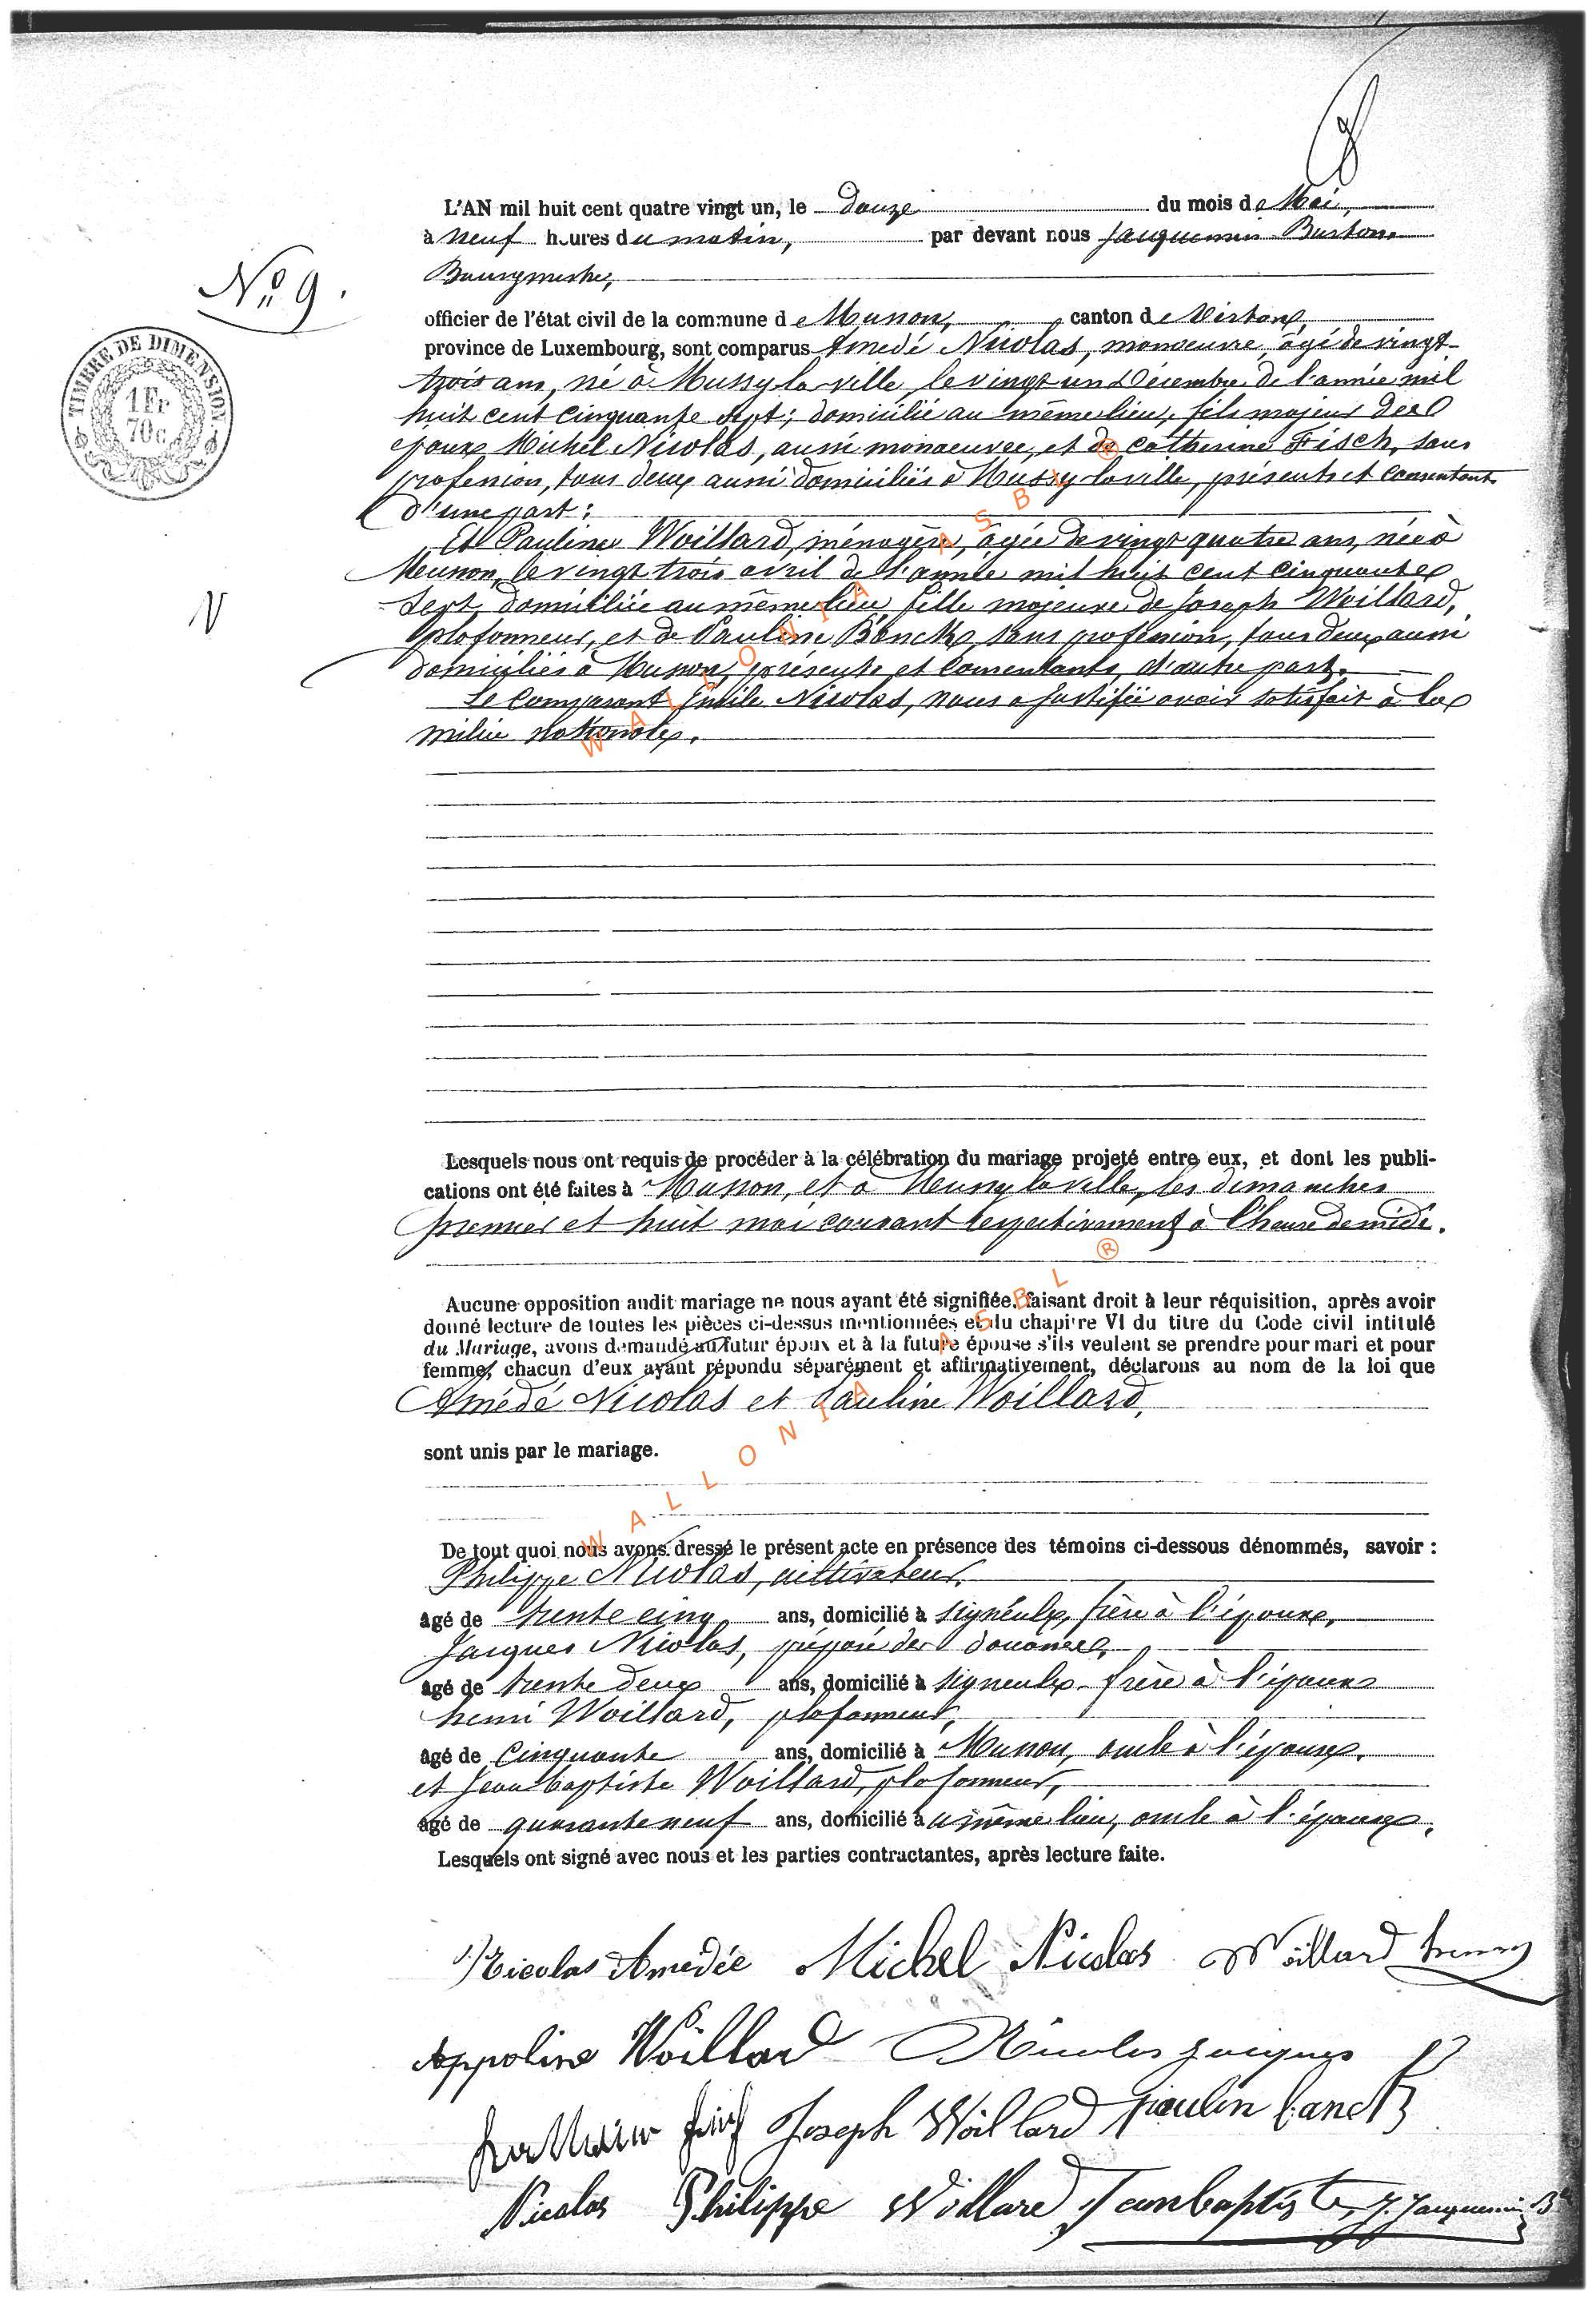 L'AN mil huit cent quatre vingt un, le douze du mois de Mai,
à neuf heures du matin, par devant nous Jacquemin Burton,
Bourgmestre,
No 9.
officier de l'état civil de la commune de Musson, canton de Virton,
province de Luxembourg, sont comparus Amedé Nicolas, manoeuvre, âgé de vingt-
trois ans, né à Mussy la ville, le vingt un Décembre de l'année mil
huit cent cinquante sept; domicilié au même lieu, fils majeur des
époux Michel Nicolas, aussi manoeuvre, et de Catherine Fisch, sans
profession, tous deux aussi domiciliés à Mussy laville, présents et consentants
d'une part;
TIMBRE DE DIMENSION
1 Fr
70 c
Et Pauline Woillard, ménagère, âgée de vingt quatre ans, née à
Musson, le vingt trois avril de l'année mil huit cent cinquante
sept, domiciliée au même lieu, fille majeure de Joseph Woillard,
plafonneur, et de Pauline Banck, sans profession, tous deux aussi
domiciliés à Musson, présents et consentants, d'autre part.
N
Le comparant Emile Nicolas, nous a justifié avoir satisfait à la
milice nationale.
WALLONIA ASBL ®
Lesquels nous ont requis de procéder à la célébration du mariage projeté entre eux, et dont les publi-
cations ont été faites à Musson, et à Mussy la ville, les dimanches
premier et huit mai courant respectivement à l'heure de midi.
Aucune opposition audit mariage ne nous ayant été signifiée, faisant droit à leur réquisition, après avoir
donné lecture de toutes les pièces ci-dessus mentionnées et du chapitre VI du titre du Code civil intitulé
du Mariage, avons demandé au futur époux et à la future épouse s'ils veulent se prendre pour mari et pour
femme, chacun d'eux ayant répondu séparément et affirmativement, déclarons au nom de la loi que
Amédé Nicolas et Pauline Woillard,
sont unis par le mariage.
WALLONIA ASBL ®
De tout quoi nous avons dressé le présent acte en présence des témoins ci-dessous dénommés, savoir :
Philippe Nicolas, cultivateur,
âgé de trente cinq ans, domicilié à Signeulx, frère à l'époux,
Jacques Nicolas, préposé des douanes,
âgé de trente deux ans, domicilié à Signeulx frère à l'époux
henri Woillard, plafonneur,
âgé de cinquante ans, domicilié à Musson, oncle à l'épouse,
et Jean baptiste Woillard, plafonneur,
âgé de quarante neuf ans, domicilié au même lieu, oncle à l'épouse,
Lesquels ont signé avec nous et les parties contractantes, après lecture faite.
Nicolas Amédée Michel Nicolas Woillard henry
Appoline Woillard Nicolas Jacques
Joseph Woillard paulin banck
Nicolas Philippe Woillard Jean baptiste J. Jacquemin Bon